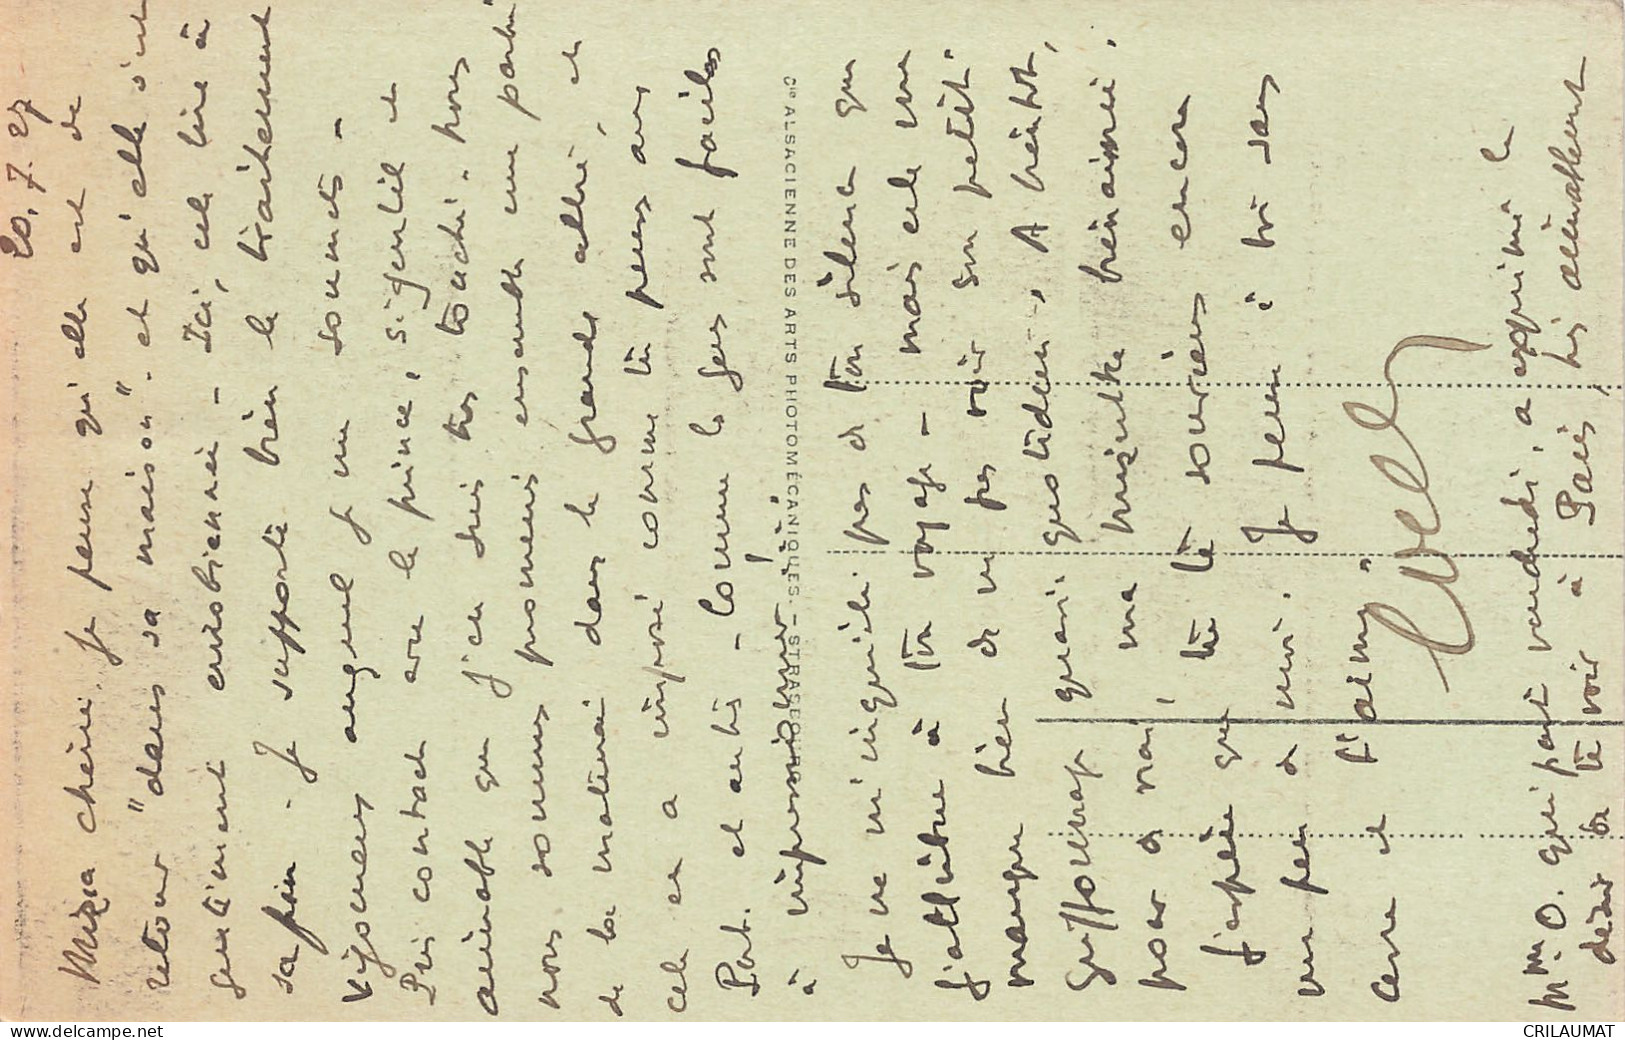 20.7.27
Mizza chérie. Je pense qu'elle est de
retour "dans sa maison" - et qu'elle s'est
gentiment - Ici, cela tire à
sa fin. Je supporte bien le traitement
vigoureux auquel je me soumets -
Pris contact avec le prince, si gentil et
aimable que j'en suis très touché. Nous
nous sommes promenés ensemble une partie
de la matinée dans la grande allée, et
cela en a imposé comme tu penses aux
Pont. et autres - Comme les gens sont faciles
à impressionner !
Cie ALSACIENNE DES ARTS PHOTOMÉCANIQUES. – STRASBOURG
Je ne m'inquiète pas de ton silence que
j'attribue à ton voyage - mais cela me
manque bien de ne pas voir son petit
griffonnage quasi quotidien. A bientôt,
pour de vrai, ma bien aimée.
J'espère que tu te souviens encore
un peu de moi. Je pense à toi sans
cesse et t'aime
Mme O. qui part vendredi, a exprimé le
désir de te voir à Paris,
delcampe.net
CRILAUMAT